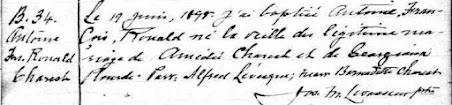 B. 34.
Antoine
Frs. Ronald
Charest
Le 19 juin, 1898 j'ai baptisé Antoine, Fran-
çois, Ronald né la veille du légitime ma-
riage de Amédée Charest et de Georgiana
Plourde. Parr. Alfred Levesque; marr. Bernadette Charest
Jos. M. Levasseur ptre